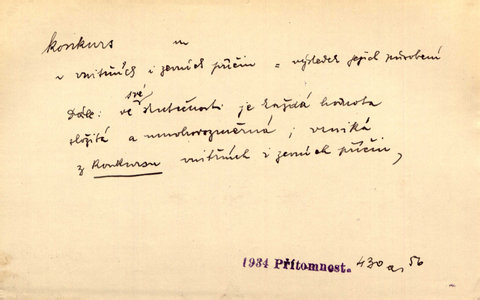 konkurs m
v vnitřních i zevních příčin = výsledek jejich působení
Dále: ve své skutečnosti je každá hodnota
složitá a mnohorozměrná; vzniká
z konkursu vnitřních i zevních příčin,
1934 Přítomnost. 430 a, 56